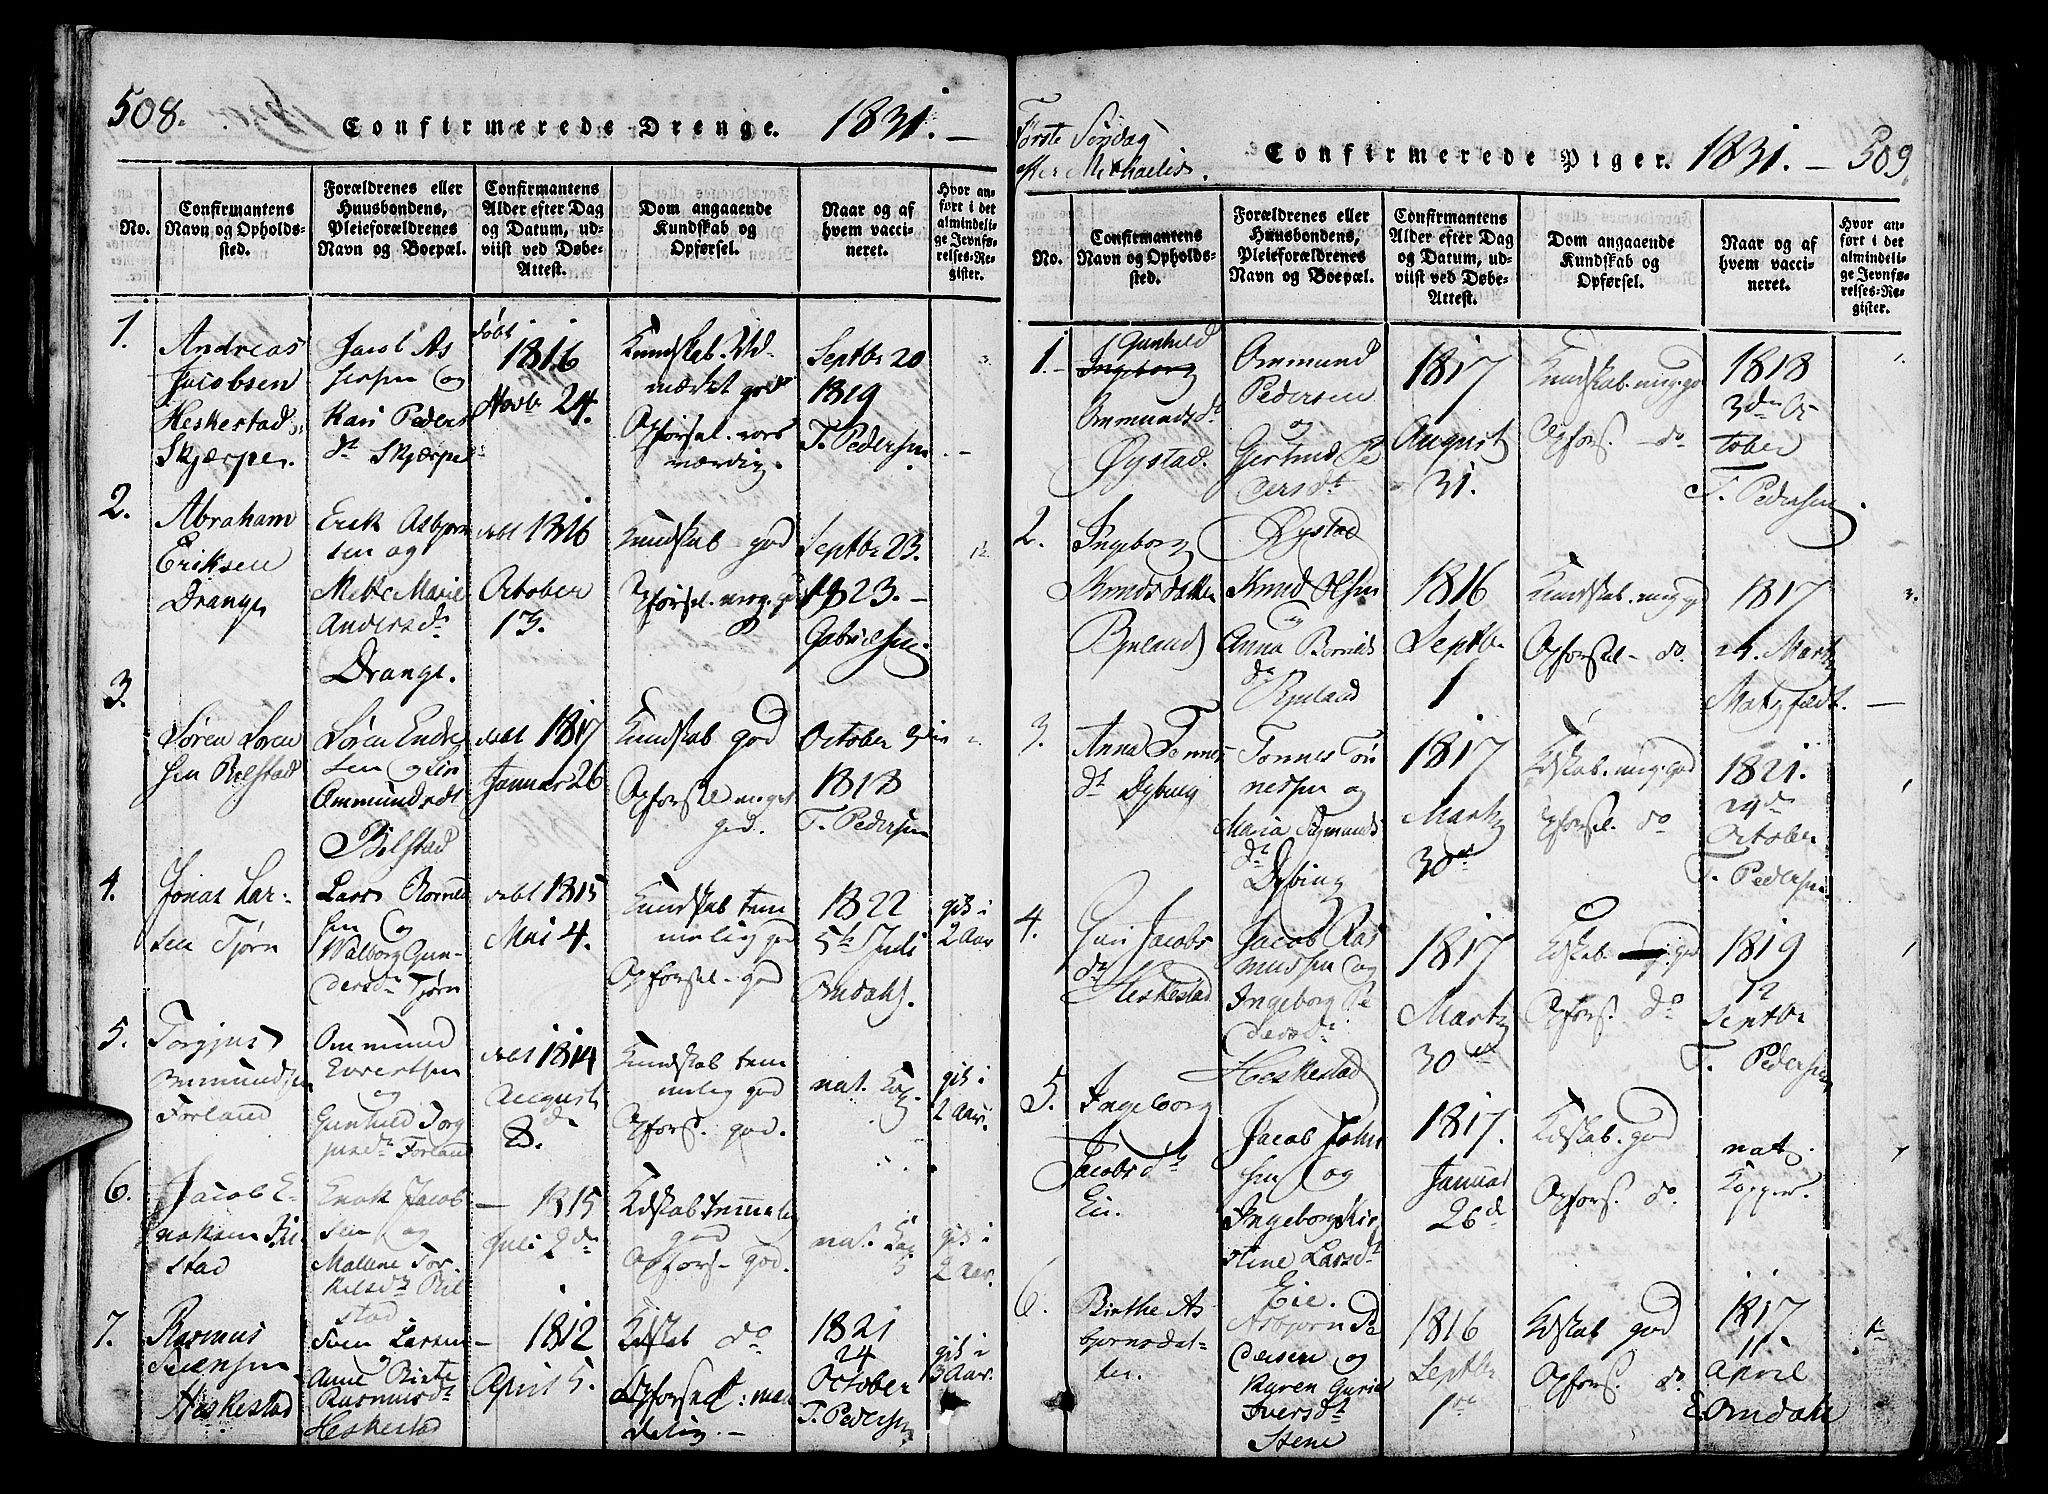 508.
Confirmerede Drenge. 1831.
No.
Confirmantens
Navn og Opholds-
sted.
Forældrenes eller
Huusbondens,
Pleieforældrenes
Navn og Boepæl.
Confirmantens
Alder efter Dag
og Datum, ud-
viist ved Døbe-
Attest.
Dom angaaende
Kundskab og
Opførsel.
Naar og af
hvem vacci-
neret.
Hvor an-
ført i det
almindeli-
ge Jevnfø-
relses-Re-
gister.
1.
Andreas
Jacobsen
Heskestad
Skjærpe.
Jacob As
og
Kari Peders
dr Skjærpe
døbt
1816
Novbr 24.
Kundskab. Ud-
mærket god
Opførsel. roes
værdig.
Septbr 20
1819
T. Pedersen
2.
Abraham
Eriksen
Drange
Erik Asbjørn
sen og
Mette Marie
Andersdr
Drange.
døbt 1816
October
13.
Kundskab god
Opførsel. meg. god
Septbr 23.
1823.
Gabrielsen
3.
Søren Søren
sen Bilstad
Søren Endre
sen og Siri
Ommundsdt
Bilstad
døbt 1817
Januar 26
Kundskab god
Opførsel meget
god.
October 3die
1818
T. Pedersen
4.
Jonas Lar-
sen Tjørn
Lars
sen og
Walborg Gun-
dersdr Tjørn
døbt 1815
Mai 4.
Kundskab tem
melig god
Opførsel. god
1822
5te Juli
Omdahl.
gik i
2 Aar
5.
Torgjus
Ommundsen
Forland
Ommund
Evertsen
og
Gunhild Torg
jusdr Forland
døbt 1814
August
8. d
Kundskab tem
melig god
Opførs. god.
nat. Kop.
gik i
2 Aar.
6.
Jacob E-
noksen Bil
stad
Enok Jacob
sen og
Mallene Tor-
kelsdr Bil
stad
— 1815
Juli 2dn
Kdskab temmelig
god
Opførs. god.
nat. Kop
gik i
2 Aar.
7.
Rasmus
Svensen
Heskestad
Sven Larsen
og
Anne Birte
Rasmusdt
Heskestad
— 1812
April 5.
Kdskab do
Opførsel: maa
delig. —
1821
24
October
T. Pedersen
gik i
3 Aar.
Første Søndag
efter Michaelis.
Confirmerede Piger. 1831. — 509.
No.
Confirmantens
Navn og Opholds-
sted.
Forældrenes eller
Huusbondens,
Pleieforældrenes
Navn og Boepæl.
Confirmantens
Alder efter Dag
og Datum, ud-
viist ved Døbe-
Attest.
Dom angaaende
Kundskab og
Opførsel.
Naar og af
hvem vacci-
neret.
Hvor an-
ført i det
almindeli-
ge Jevnfø-
relses-Re-
gister.
1.
Gunhild
Ingeborg
Ommundsdt
Øystad.
Ommund
Pedersen
og
Gjertrud Pe
dersdt
Øystad
1817
August
31.
Kundskab. meg. god
Opførs. — do
1818
3dn Oc
tober
T. Pedersen
2.
Ingeborg
Knudsdatter
Bjuland
Knud Olsen
og
Anna
dr Bjuland
1816
Septbr
1
Kundskab. meg. god
Opførsel — do.
1817
Martz
3.
Anna Tønnes
dt Dybing
Tønnes Tøn
nessen og
Maria Sigmunds
dr
Dybing
1817
Martz
30te
Kdskab. meg. god
Opførsel. do
1821.
29de
October
T. Pedersen
4.
Guri Jacobs
dr
Heskestad
Jacob Ras
mussen og
Ingeborg Pe
dersdr
Heskestad
1817
Martz
30te
Kdskab. god
Opførs. do
1819
12
Septbr
T. Pedersen
5.
Ingeborg
Jacobsdt
Eie.
Jacob John
sen og
Ingeborg Kir
stine Larsdt
Eie.
1817.
Januar
26d
Kdskab. god
Opførs. do
nat.
Kopper.
6.
Birthe As
bjørnsdat-
ter.
Asbjørn Pe
dersen og
Karen Gurie
Iversdt
Stene
1816
Septbr
1te
Kdskab god
Opførs. do
1817
11
April
E Omdahl